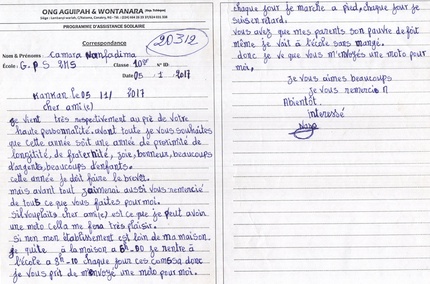 ONG AGUIPAH & WONTANARA
PROGRAMME D'ASSISTANCE SCOLAIRE
Correspondance
20312
Nom & Prénoms: Camara Nanfadima
École: G.P.S 2MS Classe: 10e N° ID:
Date 05 - 1 - 2017
Kankan le 05/11/ 2017
cher ami(e)
je vient très respectivement auprè de votre
haute personnalité. avant toute je vous souhaites
que cette année soit une année de proximité de
longitité, de fraternité, joie, bonheur, beaucoups
d'argents, beaucoups d'enfants.
cette année je doit faire le brevet.
mais avant tout j'aimerai aussi vous remercié
de tous ce que vous faites pour moi.
silvouplaits cher ami(e) est ce que je peut avoir
une moto cella me fera très plaisir.
si non mon établissement est loin de ma maison
je quite à la maison a 6h-00 je rentre à
l'école a 8h-10 chaque jour ces comssa donc
je vous prit de m'envoyé une moto pour moi.
chaque jour je marche a pied, chaque jour je
suis en retard.
vous avez que mes parents son pauvre de foit
même je vait à l'école sans mangé.
donc je ve que vous m'envoyés une moto pour
moi.
je vous aimes beaucoups
je vous remercie
Abientôt
interessé